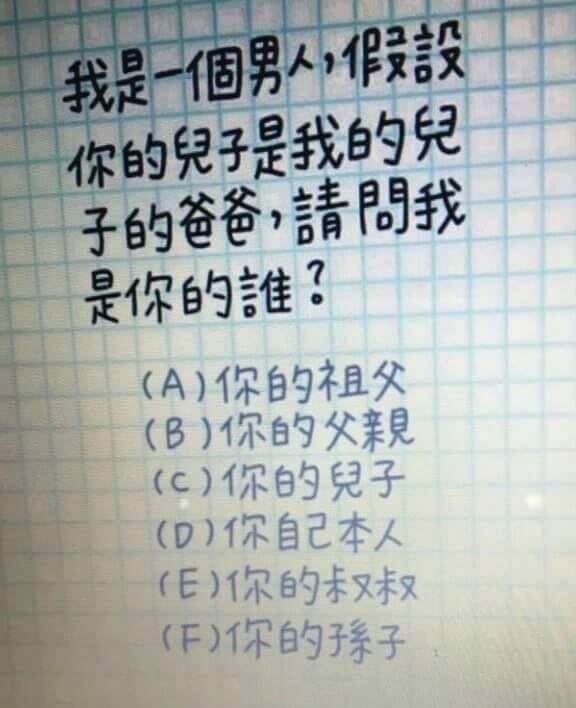 我是一個男人,假設
你的兒子是我的兒
子的爸爸,請問我
是你的誰?
(A)你的祖父
(B)你的父親
(C)你的兒子
(D)你自己本人
(E)你的叔叔
(F)你的孫子